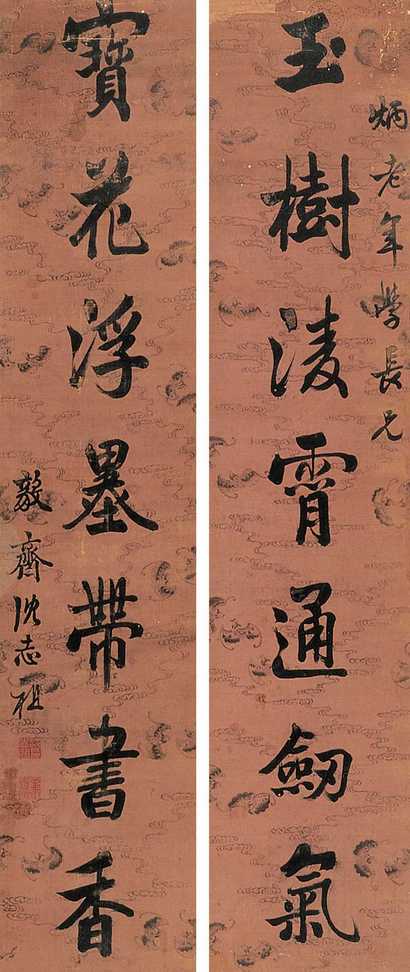 炳老年學長兄
玉樹淩霄通劒氣
寶花浮墨帶書香
敦齋沈志祖